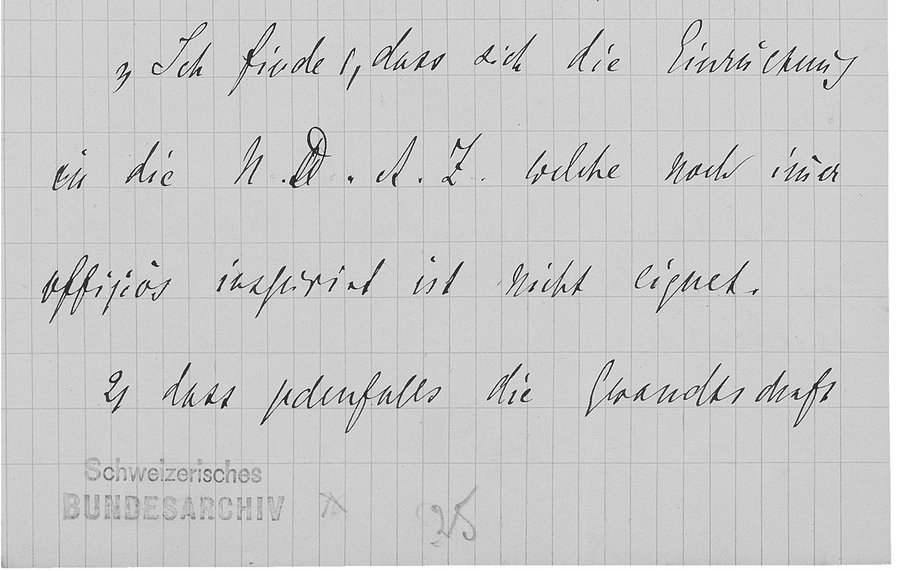 Ich finde 1, dass sich die Einrückung
in die N.D.A.Z. welche noch imer
offiziös inspiriert ist nicht eignet.
2) dass jedenfalls die Gesandtschaft
Schweizerisches
BUNDESARCHIV
25